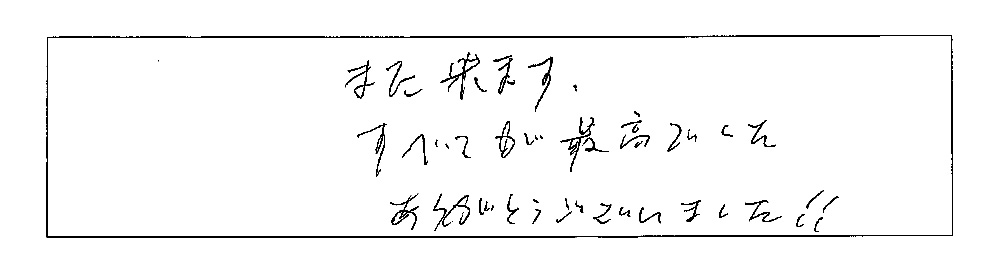 また来ます.
すべてが最高でした
ありがとうございました!!